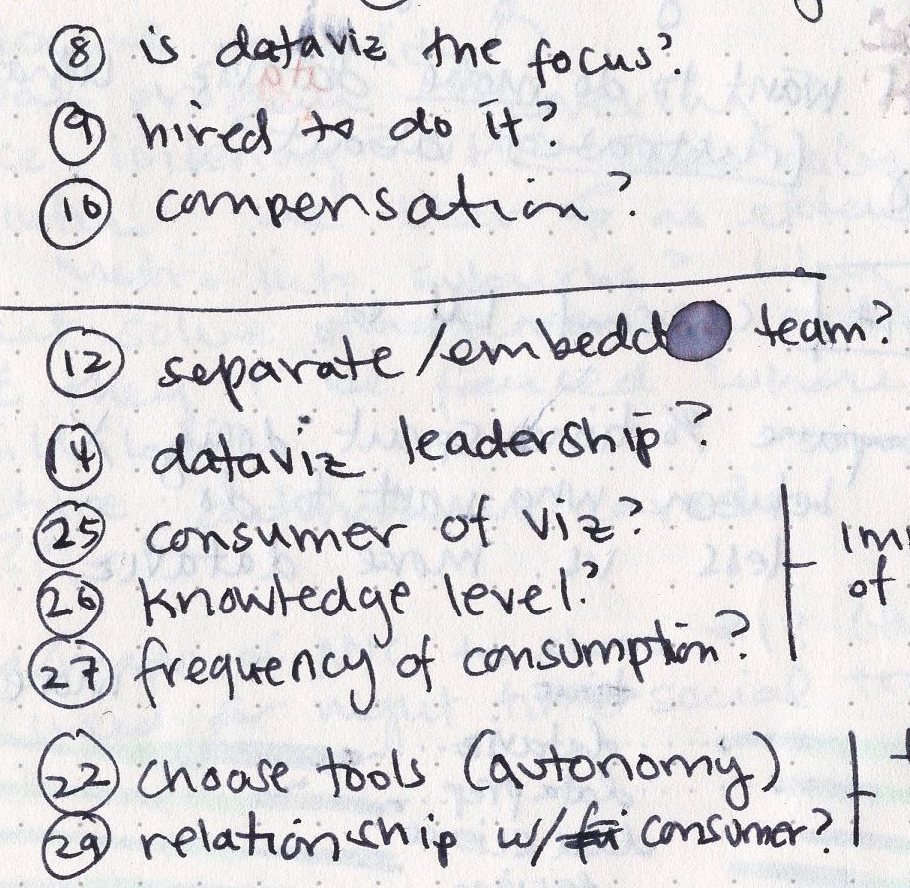 8 is dataviz the focus?
9 hired to do it?
10 compensation?
12 separate/embedd team?
14 dataviz leadership?
25 consumer of viz?
26 knowledge level?
27 frequency of consumption?
of
22 choose tools (autonomy)
29 relationship w/ consumer?